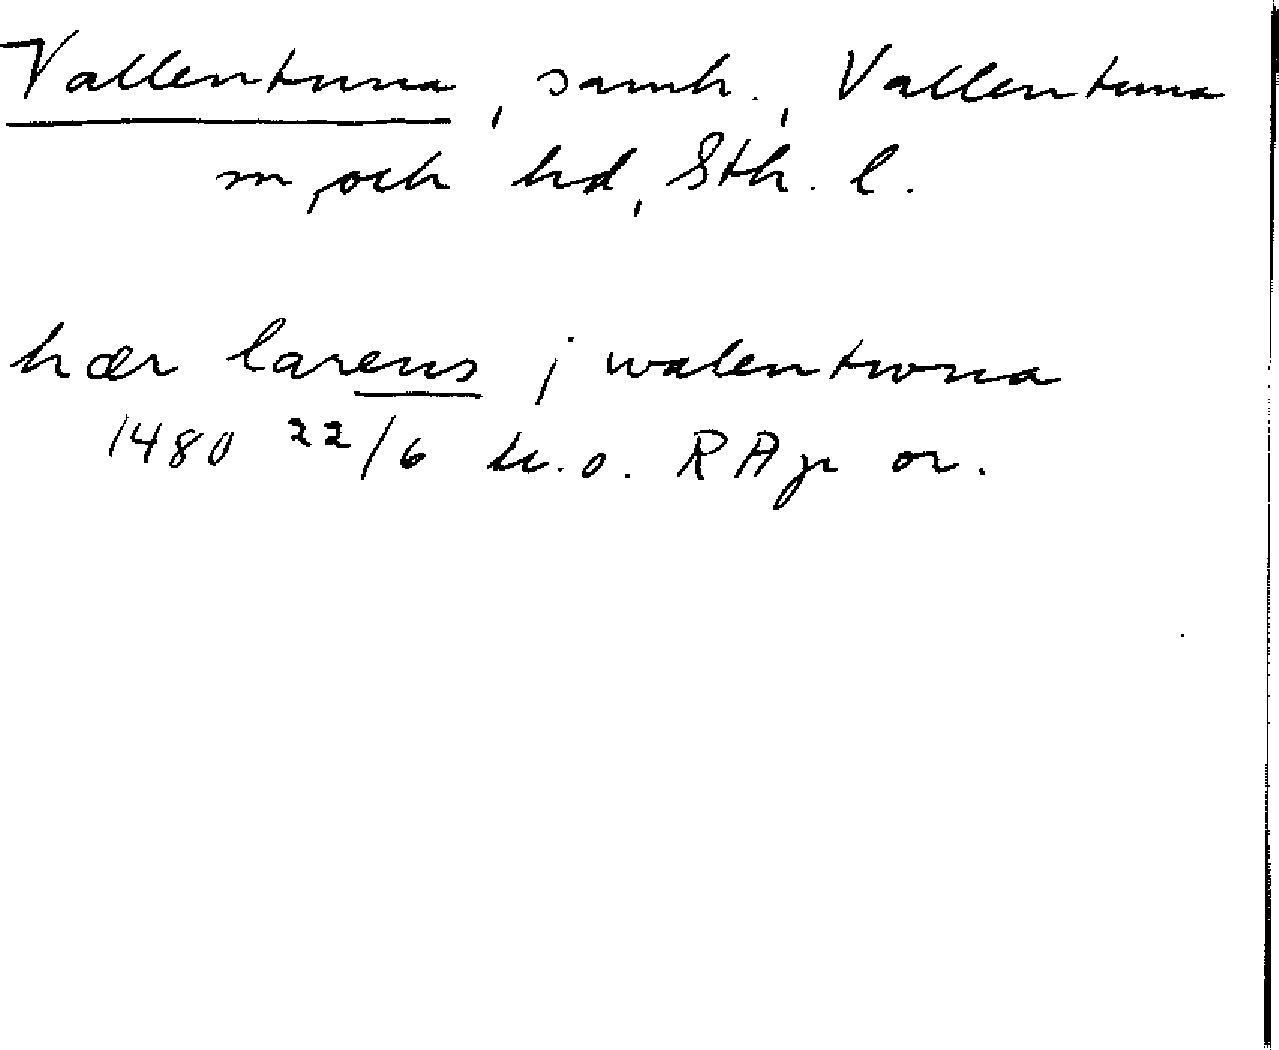 Vallentuna, samh., Vallentuna
sn, och hd, Sth. l.
hær larens j walentwna
1480 22/6 u.o. RAp or.